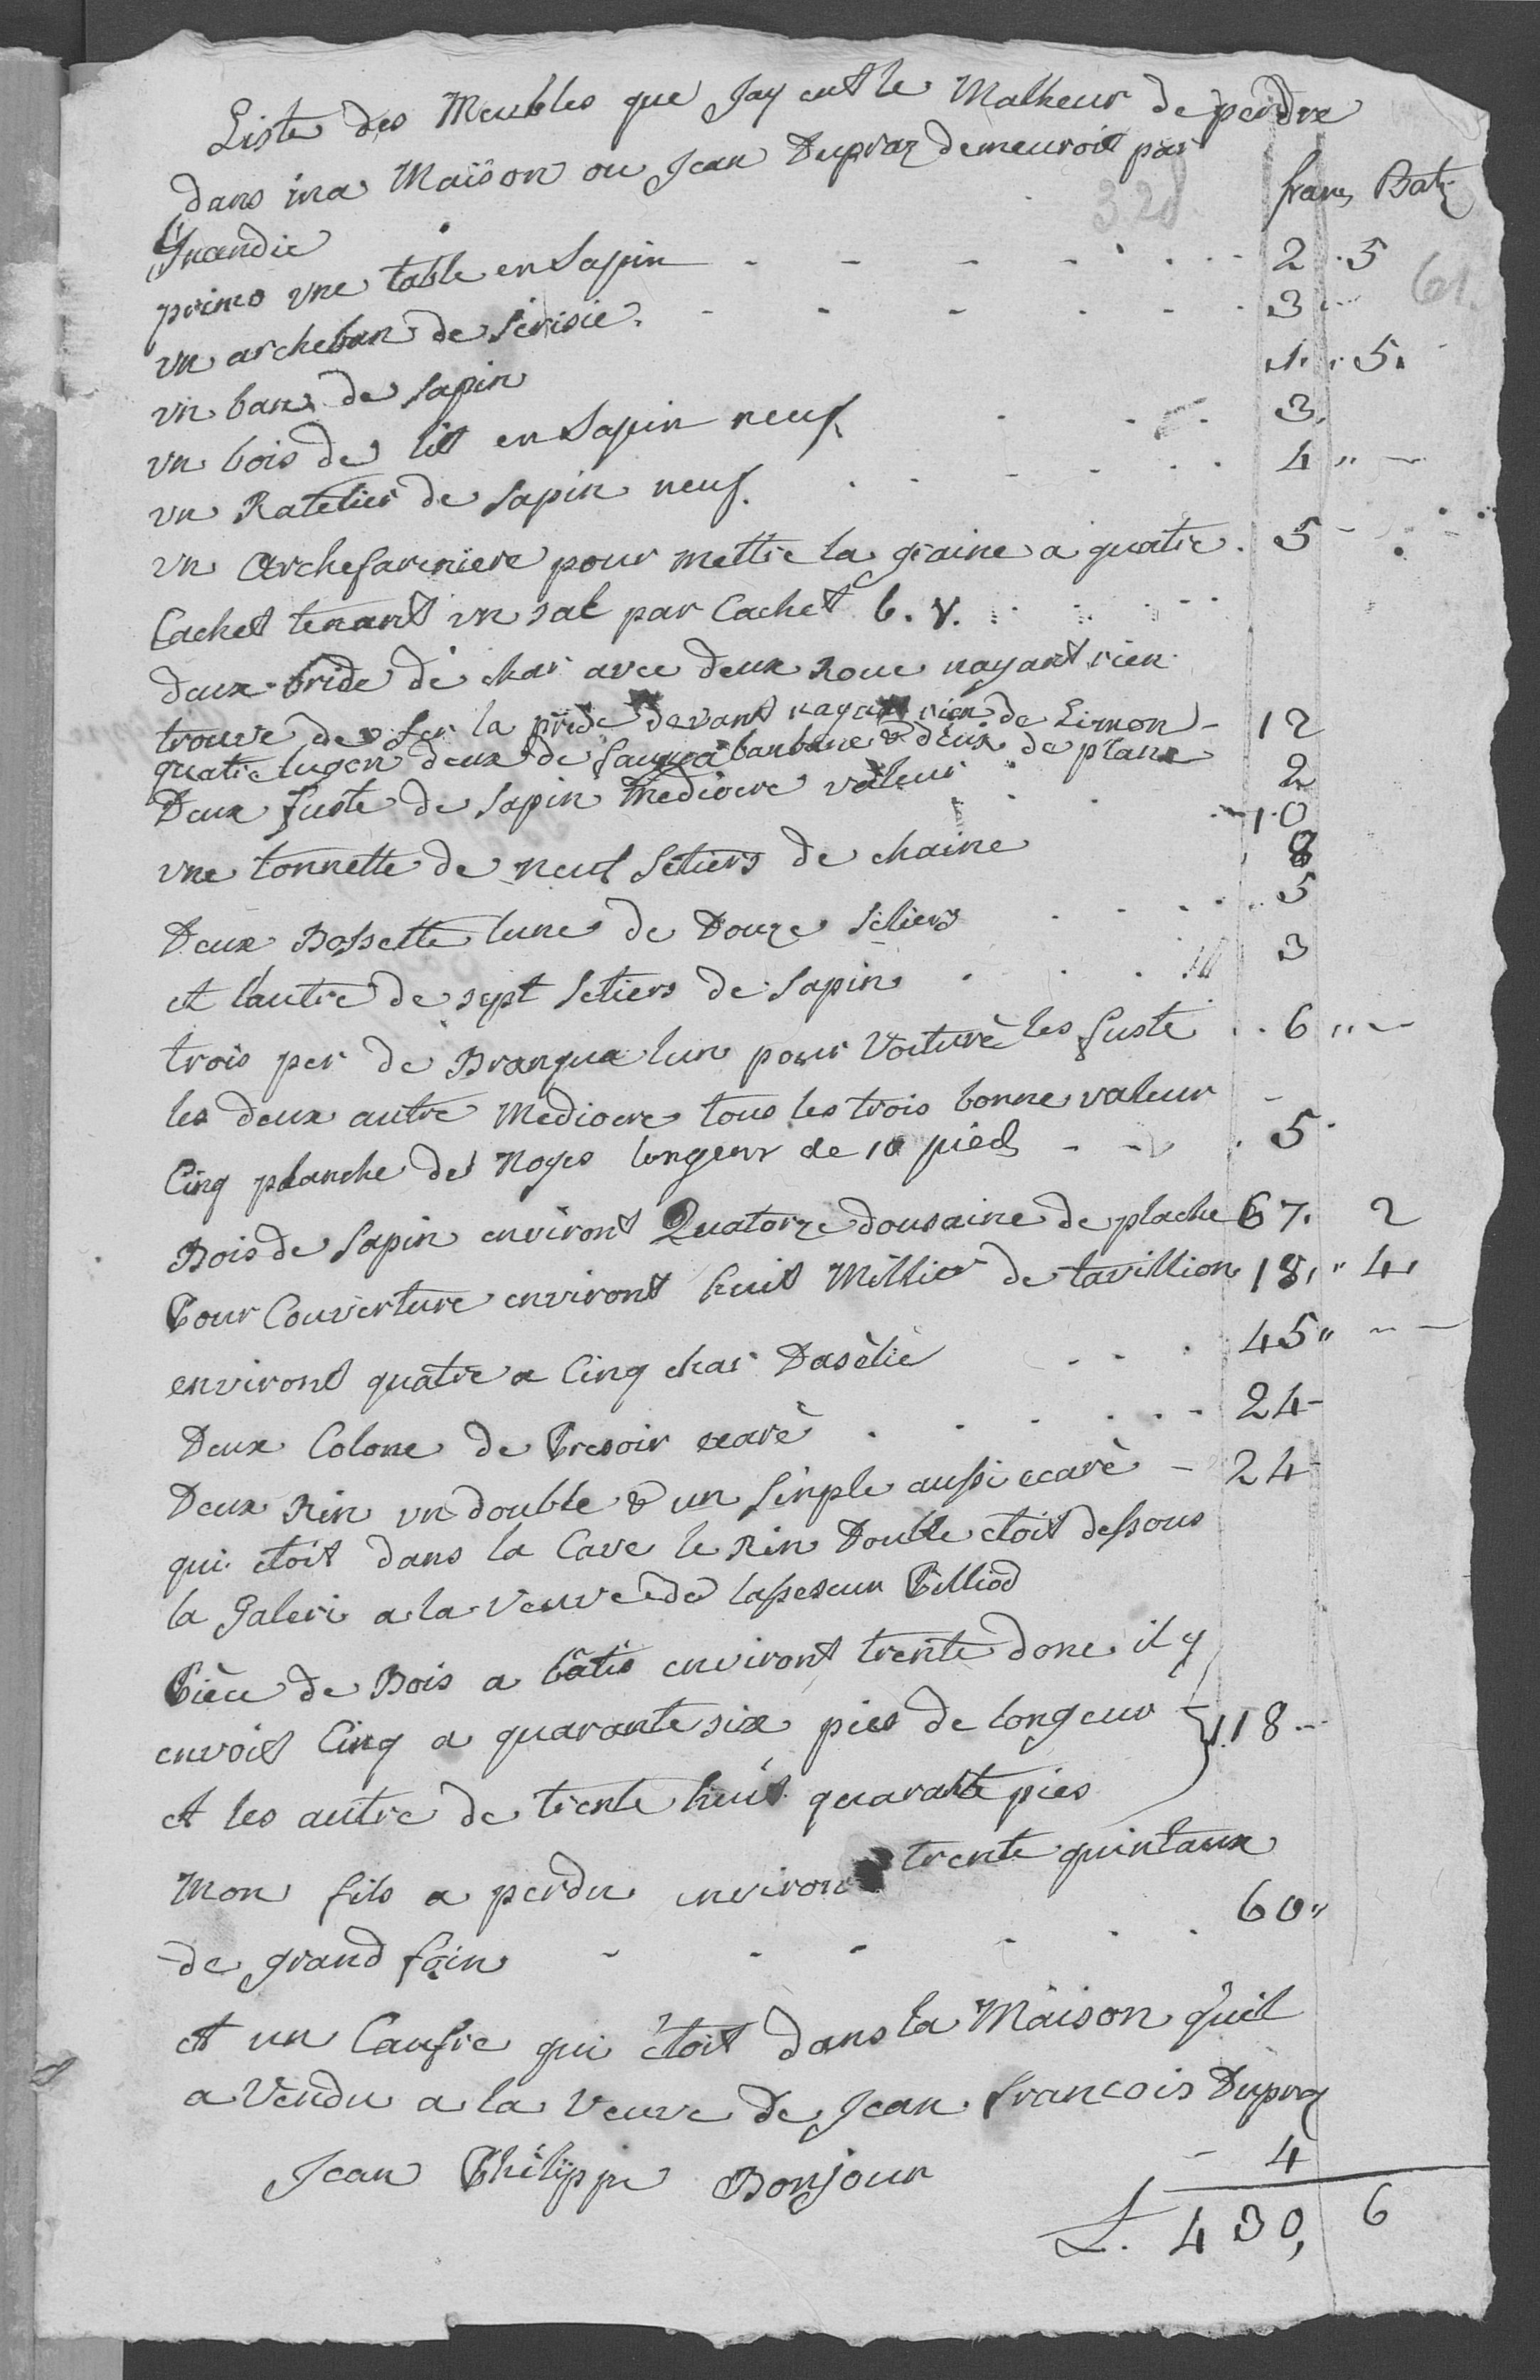 Liste des Meubles que Jay eut le Malheur de perdre
dans ma Maison ou Jean Dupraz demeuroit par
Jncendie
328
franc Batz
primo vne table en Sapin - - - - 2 . 5
61.
vn archeban de Serisie. - - - - 3
vn banc de Sapin 1. . 5.
vn bois de lit en Sapin neuf 3.
vn Ratelier de Sapin neuf. 4 "
vn Archefariniere pour mettre la graine a quatre . 5
Cachet tenant vn sac par Cachet 6. v.
deux bride de char avec deux Roue nayant rien
trouve de fer la pride devant nayant rien de Limon - 12
quatre lugon deux de banbane & deux de plane 2
Deux fuste de Sapin Mediocre valeur 10
vne tonnette de neuf Setiers de chaine 8
Deux Bossette lune de Douze Setiers 5
et lautre de sept Setiers de Sapin 3
trois per de Branqua lun pour Voiturè les fuste . . 6 "
les deux autre Mediocre tous les trois bonne valeur
Cinq planche de Noyes longeur de 10 pied - - . 5
Bois de Sapin environt Quatorze dousaine de plache 67. 2
Pour Couverture environt huit Millier de tavillion 18, " 4,
environt quatre a Cinq char Dasèlie 45 "
Deux Colone de Presoir ecarè 24
Deux Rin vn double & un Sinple aussi ecarè - 24
qui etoit dans la Cave le Rin Double etoit dessous
la Galeri a la Veuve de lasseseur Pilliod
Pièce de Bois a bâtis environt trente donc il y
envoit Cinq a quarante six pies de longeur 118
et les autre de trente huit quarante pies
Mon fils a perdu environ trente quintaux
de grand foin 60 "
et un Caufre qui étoit dans la Maison quil
a Vendu a la Veuve de Jean francois Dupraz
- 4
Jean Philippe Bonjour
L. 430, 6